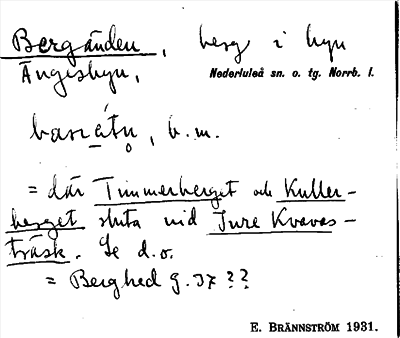 Bergänden, berg i byn
Ängesbyn,
Nederluleå sn. o. tg. Norrb. l.
b.m.
= där Timmerberget och Kuller-
berget sluta vid Jure Kvavas-
träsk. Se d.o.
= Berghed g. 37 ??
E. BRÄNNSTRÖM 1931.